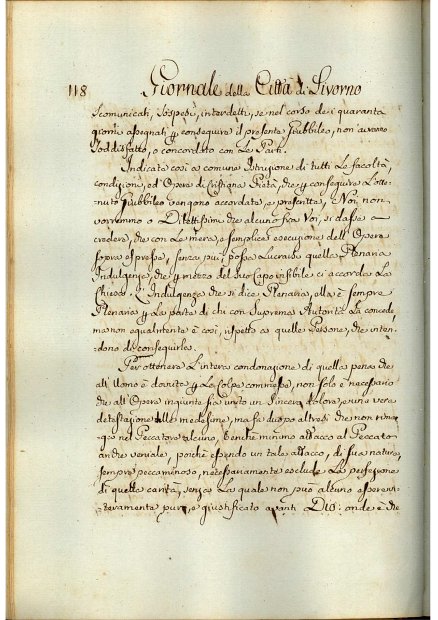 118 Giornale della Città di Livorno
scomunicati, sospesi, interdetti, se nel corso dei quaranta
giorni assegnati p conseguire il presente Giubbileo, non avranno
soddisfatto, o concordato con Le Parti.
Indicate così a comune Istruzione di tutti Le facoltà,
condizioni, ed Opere di Cristiana Pietà, che p conseguire L'otte-
nuto Giubbileo vengono accordate, e prescritte, Noi non
vorremmo o Dilettissimi che alcuno fra Voi, si dasse a
credere, che con La mera, e semplice esecuzione dell'Opere
sopra espresse, senza più possa Lucrarsi quella Plenaria
Indulgenza, che p mezzo del suo Capo visibile ci accorda La
Chiesa. L'Indulgenza che si dice Plenaria, ella è sempre
Plenaria p La parte di chi con Suprema Autorità La concede
ma non equalmente è così, rispetto a quelle Persone, che inten-
dono di conseguirla.
Per ottenere L'intera condonazione di quella pena che
all'Uomo è dovuta p La Colpa commessa, non solo è necessario
che all'Opere ingiunte sia unito un Sincero dolore, e una vera
detestazione delle medesime, ma fa duopo altresì che non riman-
ga nel Peccatore alcuno, benchè minimo attacco al Peccato
anche veniale, poichè essendo un tale attacco, di sua natura,
sempre peccaminoso, necessariamente esclude La perfezione
di quella carità, senza La quale non può alcuno essere in-
teramente puro, e giustificato avanti DIO: onde è che